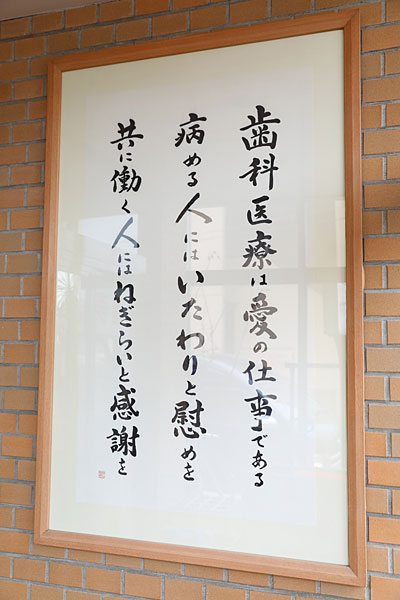 歯科医療は愛の仕事である
病める人にはいたわりと慰めを
共に働く人にはねぎらいと感謝を